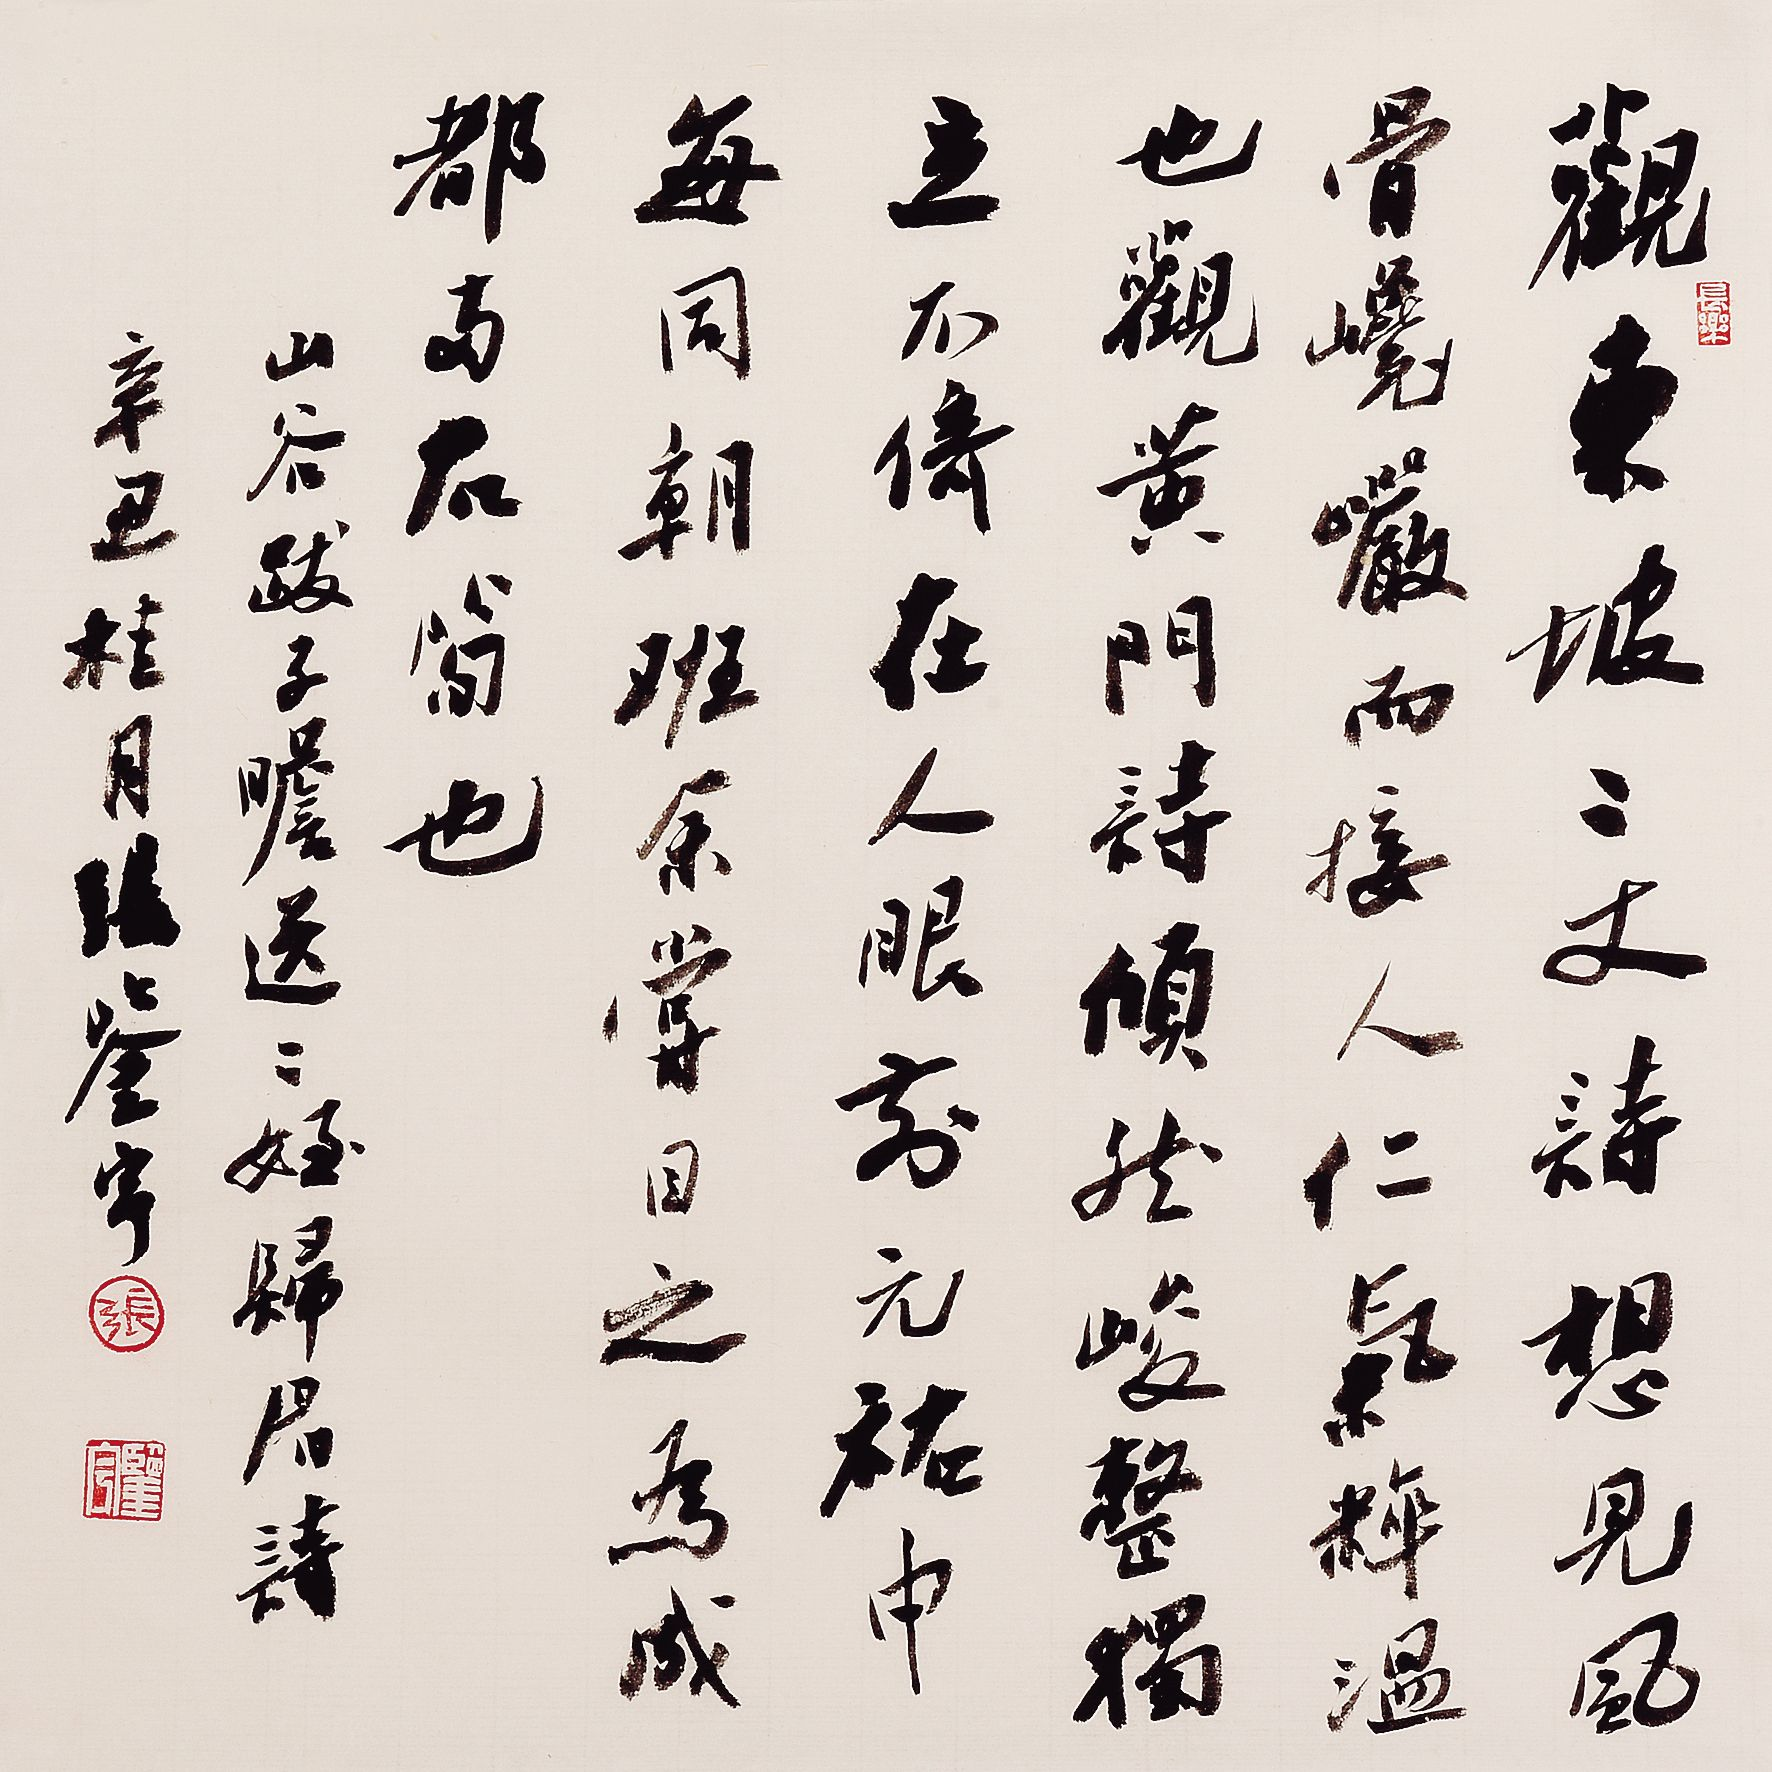 觀東坡二丈詩想見風
骨巉巖而接人仁氣粹溫
也觀黃門詩傾然峻整獨
立不倚在人眼前元祐中
每同朝班余嘗目之為成
都兩石筍也
山谷跋子瞻送二姪歸眉詩
辛丑桂月張
長樂
張